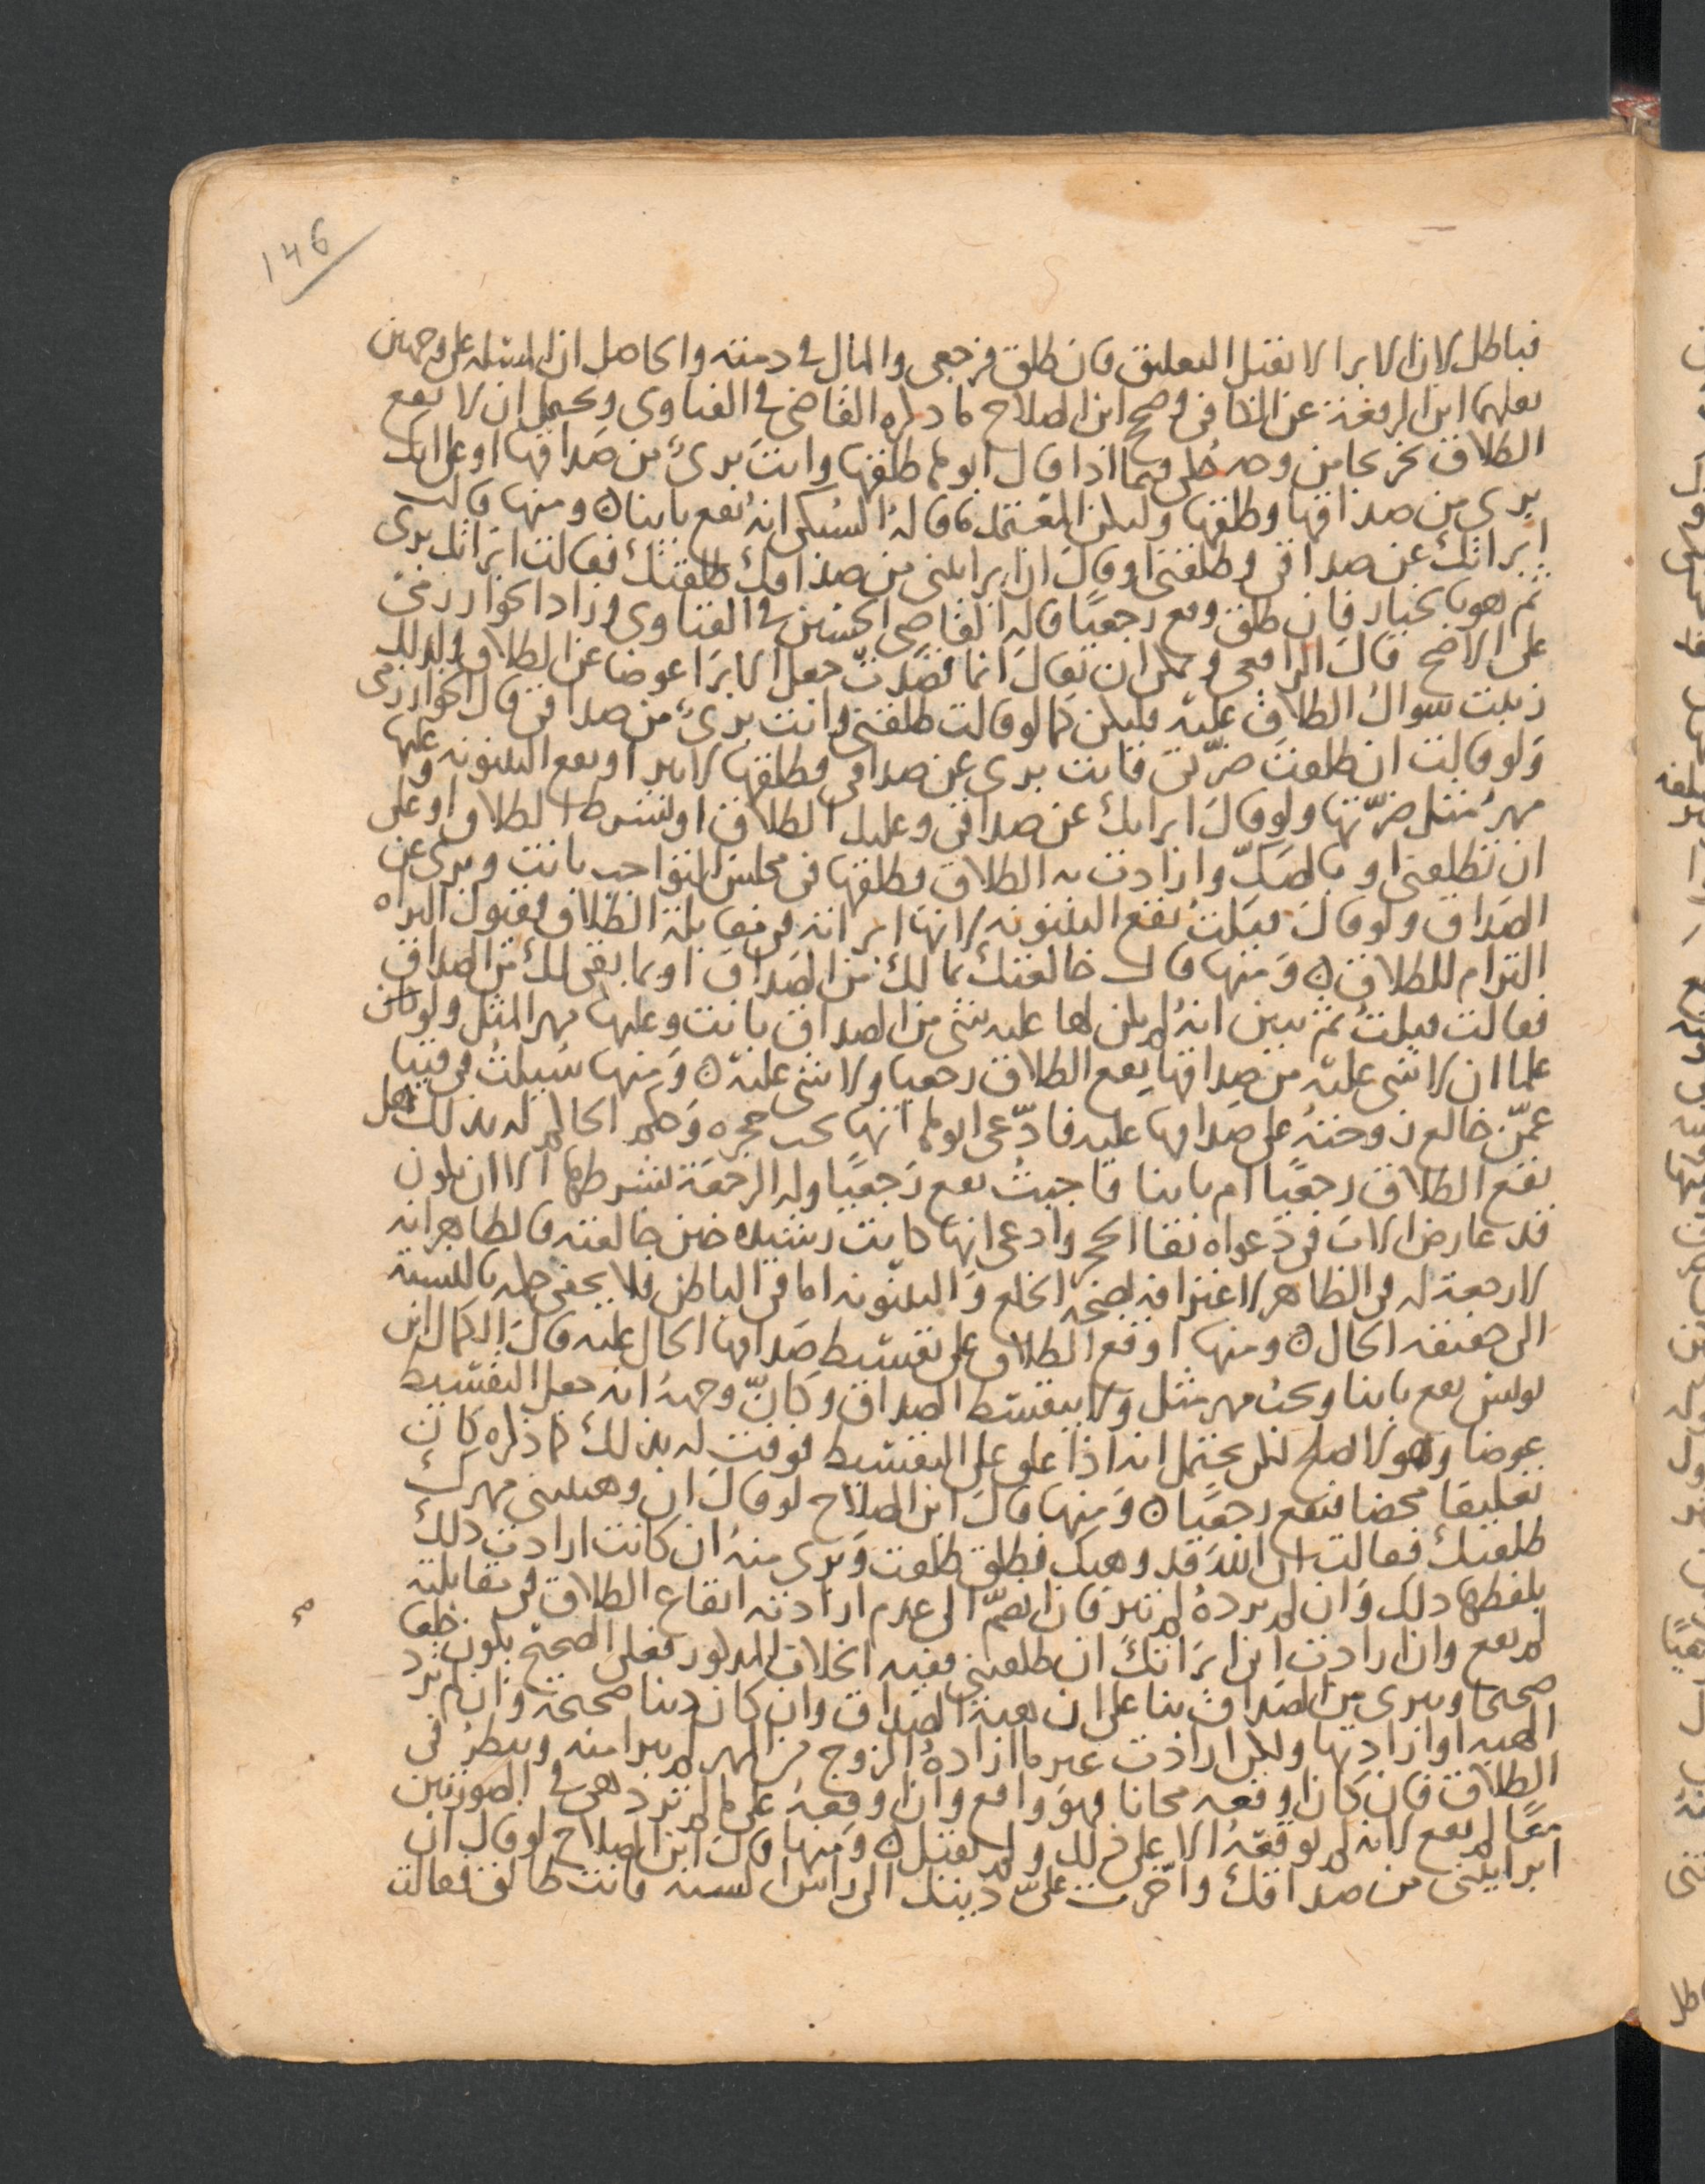 146
فباطل لان الابرا لا يقبل التعليق فان طلق فرجعى والمال فى ذمته والحاصل ان المسئله على وجهين
نقلهما ابن الرفعة عن الكافى وصحح ابن الصلاح ما ذكره القاضى فى الفتاوى ويحتمل ان لا يقع
الطلاق تخريجا من وجه حكى فيما اذا قال ابوها طلقها وانت برئ من صداقها او على انك
برى من صداقها وطلقها ولكن المعتمد ما قاله السبكى انه يقع باينا ٥ ومنها قالت
ابراتك عن صداقى وطلقنى او قال ان ابراتنى من صداقك طلقتك فقالت ابراتك برى
ثم هو بالخيار فان طلق وقع رجعيا قاله القاضى الحسين فى الفتاوى وزاد الخوارزمى
على الاصح قال الرافعى ويمكن ان يقال انما قصدت جعل الابرا عوضا عن الطلاق ولذلك
رتبت سوال الطلاق عليه فليكن كما لو قالت طلقنى وانت برىء من صداقى قال الخوارزمى
ولو قالت ان طلقت ضرتى فانت برى عن صداقى وطلقها لا يبرا ويقع البينونه وعليها
مهر مثل ضرتها ولو قال ابراتك عن صداقى وعليك الطلاق او لشرط الطلاق او على
ان تطلقنى او بالصك وارادت به الطلاق فطلقها فى مجلس التواجب بانت وبرى عن
الصداق ولو قال قبلت تقع البينونه لانها ابراته فى مقابلة الطلاق فقبول البراه
التزام للطلاق ٥ ومنها قال خالعتك بما لك من الصداق او بما بقى لك من الصداق
فقالت قبلت ثم تبين انه لم يكن لها عليه شى من الصداق بانت وعليها مهر المثل ولو كان
علما ان لا شى عليه من صداقها يقع الطلاق رجعيا ولا شى عليه ٥ ومنها سيلت فى فتيا
عمن خالع زوجته على صداقها عليه فادعى ابوها انها تحت حجره وحكم الحاكم له بذلك هل
يقع الطلاق رجعيا ام باينا فاجبت يقع رجعيا وله الرجعة لشرطها الا ان يكون
قد عارض الاب فى دعواه بقا الحجر وادعى انها كانت رشيده حين خالعته فالظاهر انه
لا رجعة له فى الظاهر لاعترافه بصحة الخلع والبينونه اما فى الباطن فلا يخفى حكمه بالنسبة
الى حقيقه الحال ٥ ومنها اوقع الطلاق على تقسيط صداقها الحال عليه قال الكمال ابن
يونس يقع باينا ويجب مهر مثل ولا يتقسط الصداق وكان وجهه انه جعل التقسيط
عوضا وهو لا يصلح لكن يحتمل انه اذا علق على التقسيط فوفت له بذلك كما ذكره كان
تعليقا محضا فيقع رجعيا ٥ ومنها قال ابن الصلاح لو قال ان وهبتنى مهرك
طلقتك فقالت ان الله قد وهبك فطلق طلقت وبرى منه ان كانت ارادت ذلك
بلفظها ذلك وان لم ترده لم تبر فان انضم الى عدم ارادته ايقاع الطلاق فى مقابلته
لم يقع وان ارادت انى ابراتك ان طلقتنى ففيه الخلاف المذكور فعلى الصحيح يكون خلعا
صحيحا ويبرى من الصداق بنا على ان هبة الصداق وان كان دينا صحيحة وان لم ترد
الهبه او ارادتها ولكن ارادت غير ما اراده الزوج من المهر لم يبرا منه وينظر فى
الطلاق فان كان اوقعه مجانا فهو واقع وان اوقعه على ما لم ترد هى فى الصورتين
معا لم يقع لانه لم يوقعه الا على ذلك ولم تقبل ٥ ومنها قال ابن الصلاح لو قال ان
ابرايتنى من صداقك واخرت على دينك الى راس السنه فانت طالق فقالت